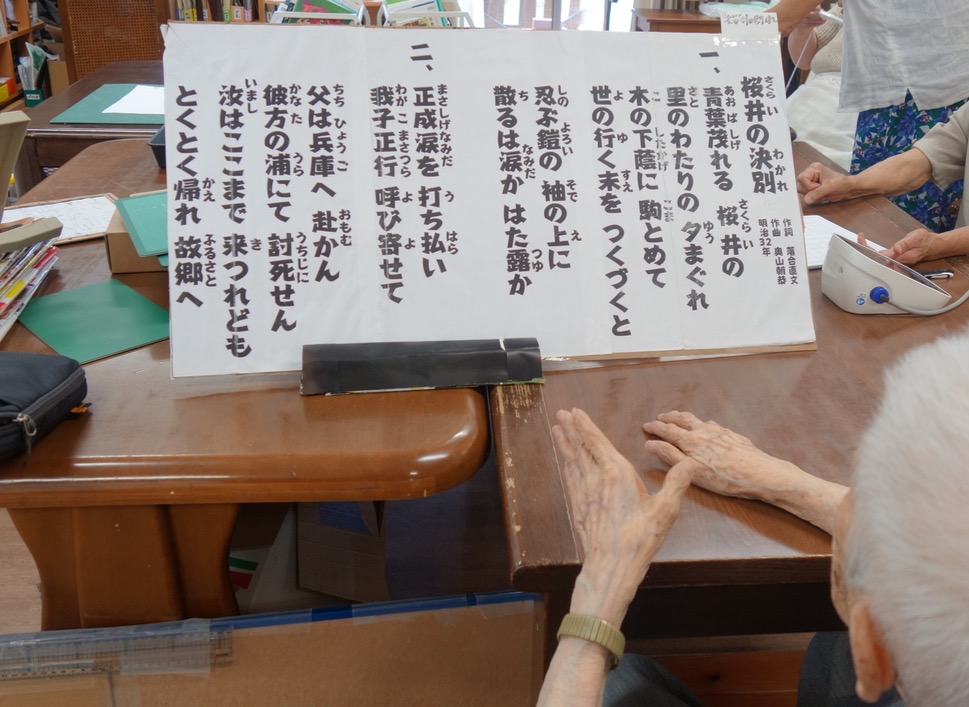 桜井の決別
作詞 落合直文
作曲 奥山朝恭
明治32年
一、
青葉茂れる 桜井の
里のわたりの 夕まぐれ
木の下蔭に 駒とめて
世の行く末を つくづくと
忍ぶ鎧の 袖の上に
散るは涙か はた露か
二、
正成涙を 打ち払い
我子正行 呼び寄せて
父は兵庫へ 赴かん
彼方の浦にて 討死せん
汝はここまで 来つれども
とくとく帰れ 故郷へ